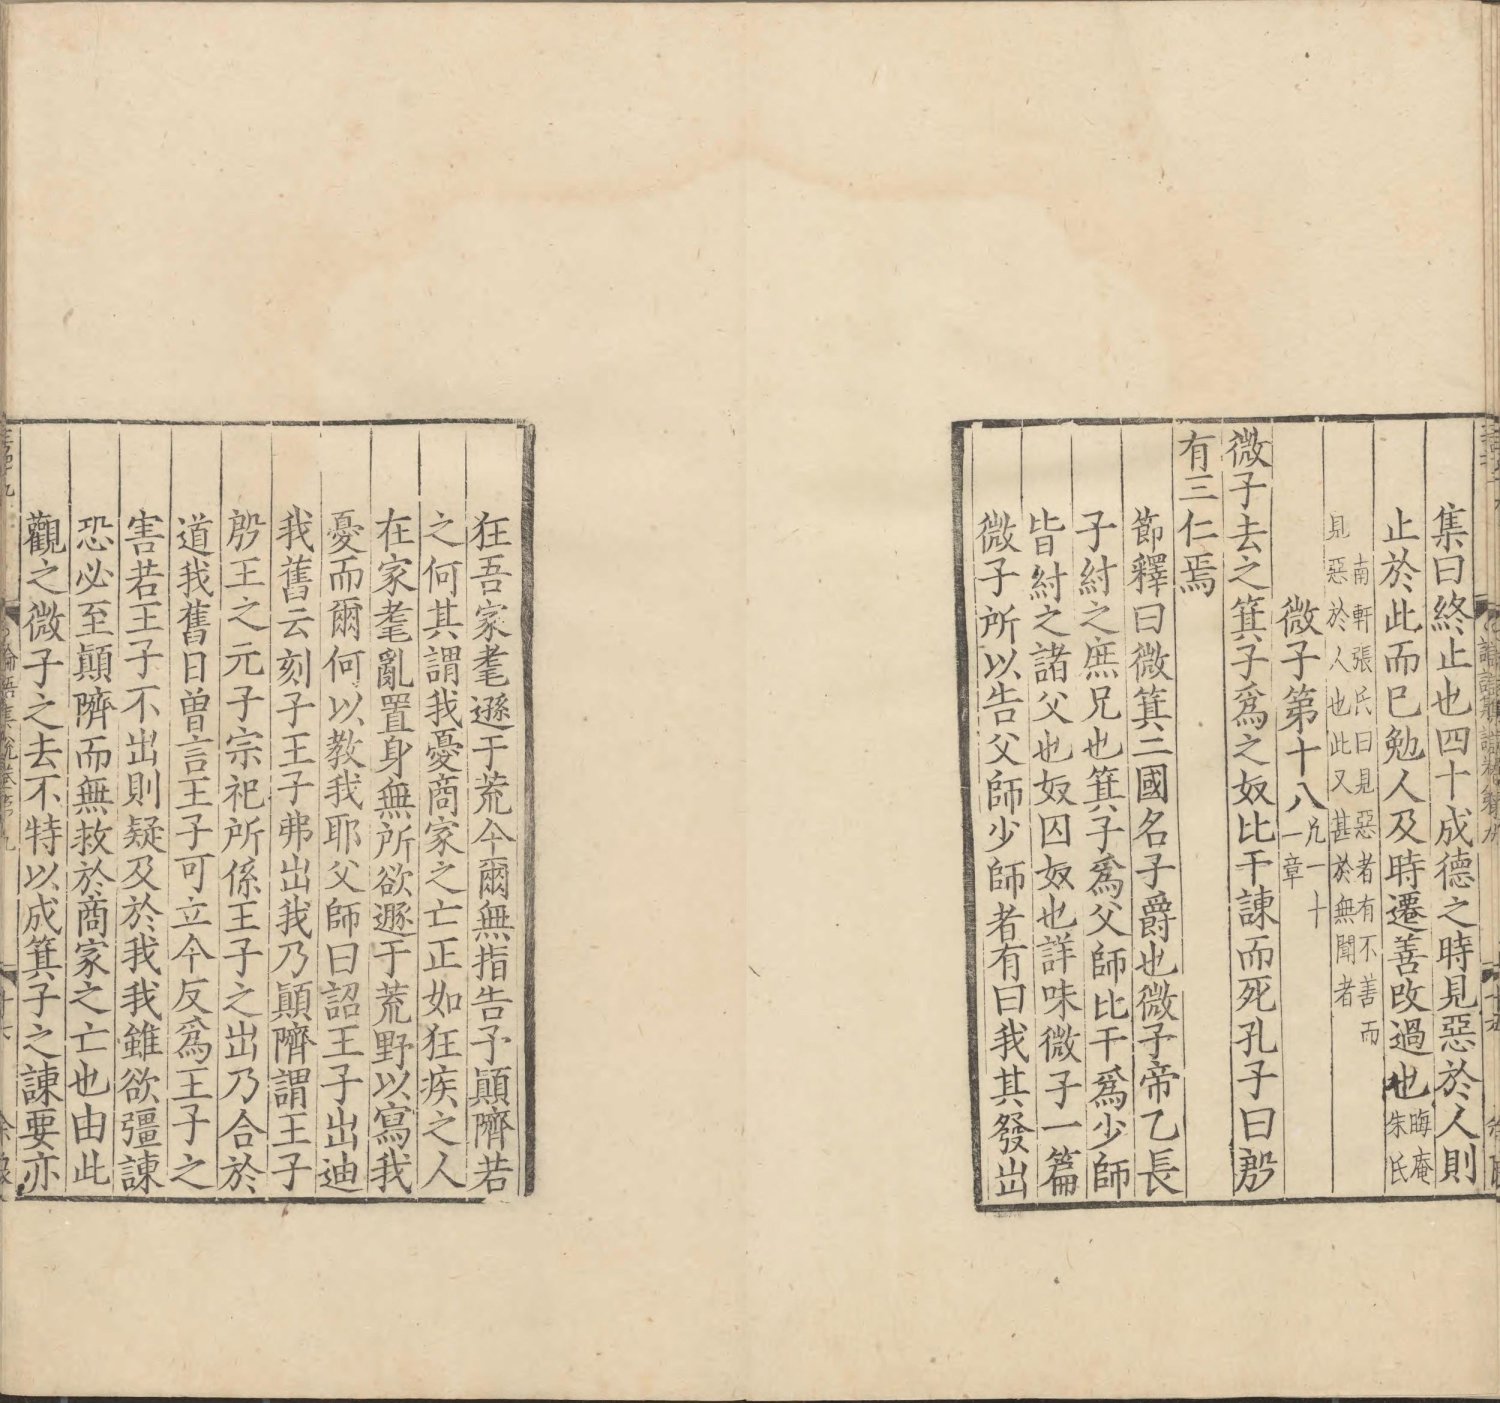 集曰終止也四十成德之時見惡於人則
止於此而巳勉人及時遷善改過也晦庵朱氏
南軒張氏曰見惡者有不善而
見惡於人也此又甚於無聞者
微子第十八凡一十一章
微子去之箕子爲之奴比干諫而死孔子曰殷
有三仁焉
節釋曰微箕二國名子爵也微子帝乙長
子紂之庶兄也箕子爲父師比干爲少師
皆紂之諸父也奴囚奴也詳味微子一篇
微子所以告父師少師者有曰我其發出
狂吾家耄遜于荒今爾無指告予顚隮若
之何其謂我憂商家之亡正如狂疾之人
在家耄亂置身無所欲遯于荒野以寫我
憂而爾何以敎我耶父師曰詔王子出迪
我舊云刻子王子弗出我乃顚隮謂王子
殷王之元子宗祀所係王子之出乃合於
道我舊日曾言王子可立今反爲王子之
害若王子不出則疑及於我我雖欲彊諫
恐必至顚隮而無救於商家之亡也由此
觀之微子之去不特以成箕子之諫要亦